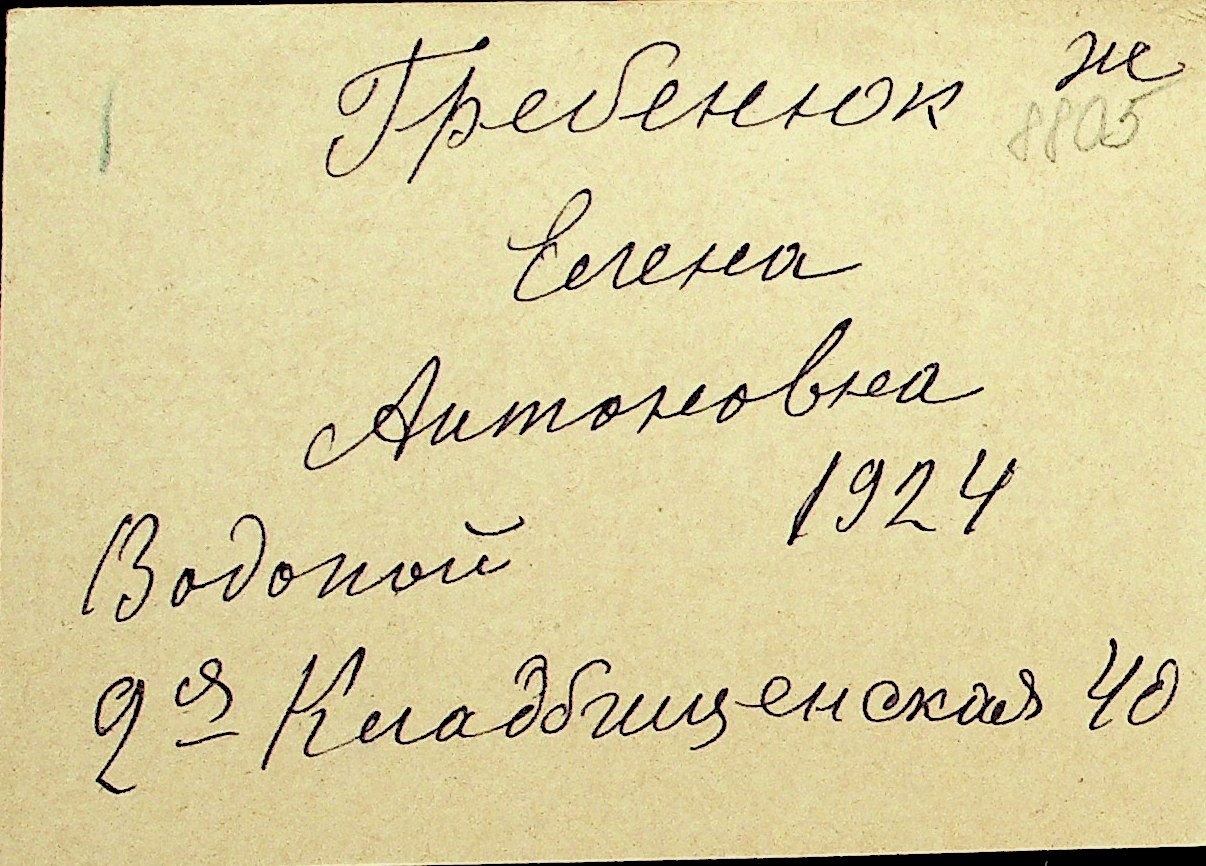 Гребенюк ж
8805
Елена
Антоновна
1924
Водопой
2я Кладбищенская 40